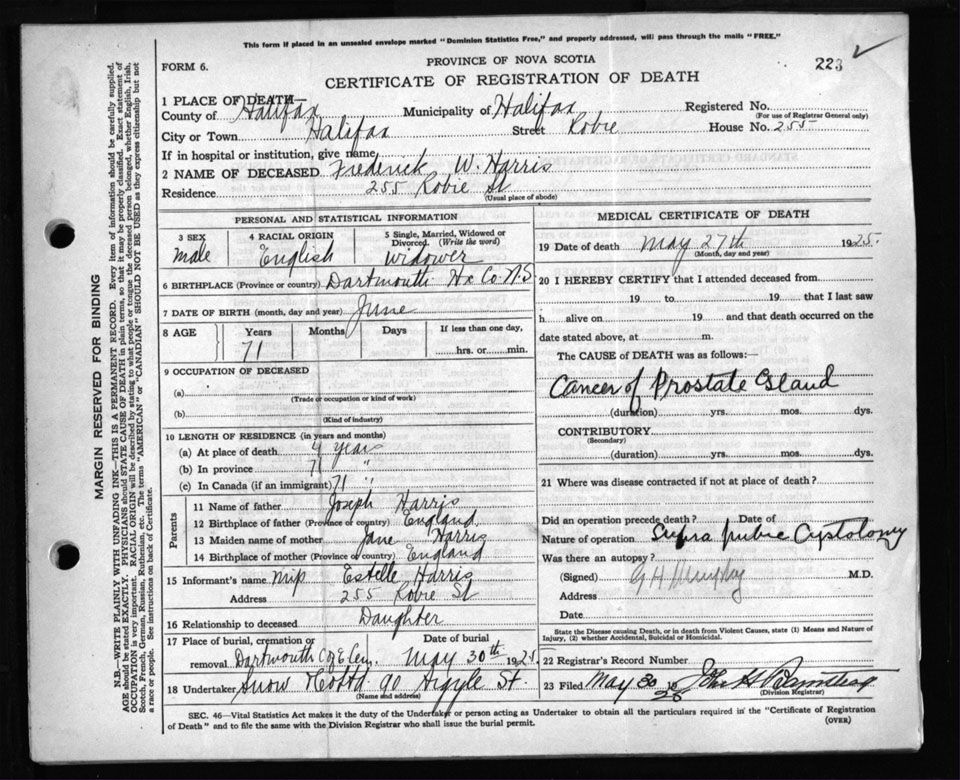 This form if placed in an unsealed envelope marked "Dominion Statistics Free," and properly addressed, will pass through the mails "FREE."
PROVINCE OF NOVA SCOTIA
223
FORM 6.
CERTIFICATE OF REGISTRATION OF DEATH
1 PLACE OF DEATH—
County of Halifax Municipality of Halifax Registered No.
(For use of Registrar General only)
City or Town Halifax Street Robie House No. 255
If in hospital or institution, give name
2 NAME OF DECEASED Frederick W. Harris
Residence 255 Robie St
(Usual place of abode)
PERSONAL AND STATISTICAL INFORMATION
3 SEX 4 RACIAL ORIGIN 5 Single, Married, Widowed or Divorced. (Write the word)
Male English Widower
6 BIRTHPLACE (Province or country) Dartmouth Hx Co. N.S
7 DATE OF BIRTH (month, day and year) June
8 AGE Years Months Days If less than one day,
71 hrs. or min.
9 OCCUPATION OF DECEASED
(a)
(Trade or occupation or kind of work)
(b)
(Kind of industry)
10 LENGTH OF RESIDENCE (in years and months)
(a) At place of death 4 year
(b) In province 71 "
(c) In Canada (if an immigrant) 71 "
Parents
11 Name of father Joseph Harris
12 Birthplace of father (Province or country) England
13 Maiden name of mother Jane Harris
14 Birthplace of mother (Province or country) England
15 Informant's name Estelle Harris
Address 255 Robie St
16 Relationship to deceased Daughter
17 Place of burial, cremation or removal Date of burial
Dartmouth C of E Cem. May 30th 1925.
18 Undertaker Snow & Co Ltd 90 Argyle St.
(Name and address)
MEDICAL CERTIFICATE OF DEATH
19 Date of death May 27th 1925.
(Month, day and year)
20 I HEREBY CERTIFY that I attended deceased from
19 to 19 that I last saw
h alive on 19 and that death occurred on the
date stated above, at m.
The CAUSE of DEATH was as follows:—
Cancer of Prostate Gland
(duration) yrs. mos. dys.
CONTRIBUTORY
(Secondary)
(duration) yrs. mos. dys.
21 Where was disease contracted if not at place of death?
Did an operation precede death? Date of
Nature of operation Supra pubic Cystotomy
Was there an autopsy?
(Signed) G H Murphy M.D.
Address
Date
State the Disease causing Death, or in death from Violent Causes, state (1) Means and Nature of
Injury, (2) whether Accidental, Suicidal or Homicidal.
22 Registrar's Record Number
23 Filed May 30 19 25 John H
(Division Registrar)
SEC. 46—Vital Statistics Act makes it the duty of the Undertaker or person acting as Undertaker to obtain all the particulars required in the "Certificate of Registration
of Death" and to file the same with the Division Registrar who shall issue the burial permit. (OVER)
MARGIN RESERVED FOR BINDING
N.B.—WRITE PLAINLY WITH UNFADING INK—THIS IS A PERMANENT RECORD. Every item of information should be carefully supplied.
AGE should be stated EXACTLY. PHYSICIANS should STATE CAUSE OF DEATH in plain terms, so that it may be properly classified. Exact statement of
OCCUPATION is very important. RACIAL ORIGIN will be described by stating to what people or tongue the deceased person belonged, whether English, Irish,
Scotch, French, German, Russian, Ruthenian, etc. The terms "AMERICAN" or "CANADIAN" SHOULD NOT BE USED as they express citizenship but not
a race or people. See instructions on back of Certificate.